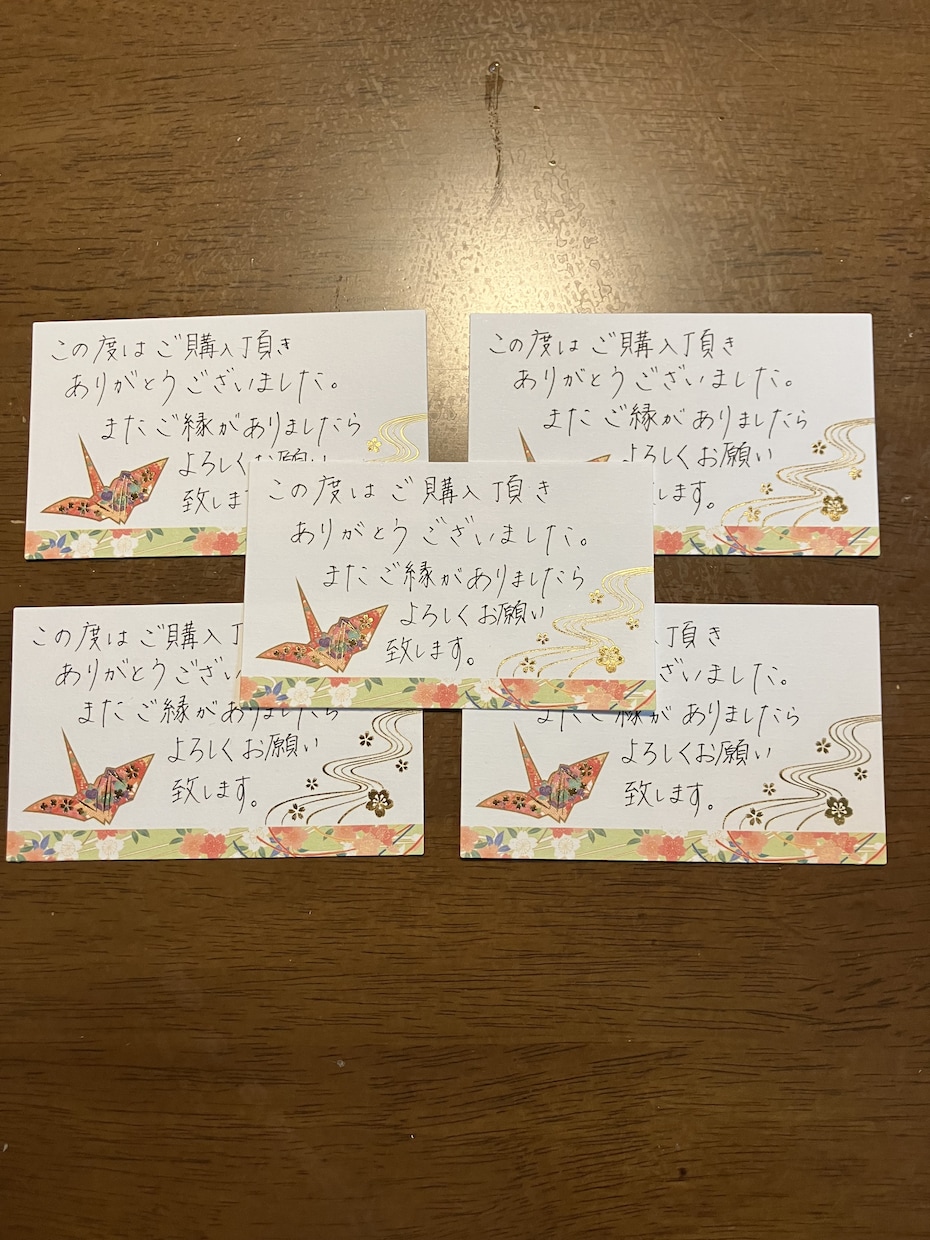 この度はご購入頂き
ありがとうございました。
またご縁がありましたら
よろしくお願い
致しま
この度はご購入頂き
ありがとうございました。
またご縁がありましたら
よろしくお願い
します。
この度はご購入頂き
ありがとうございました。
またご縁がありましたら
よろしくお願い
致します。
この度はご購入
ありがとうござい
またご縁がありましたら
よろしくお願い
致します。
頂き
ざいました。
またご縁がありましたら
よろしくお願い
致します。